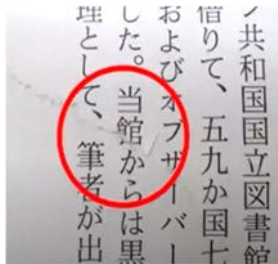 ノ共和国国立図書館
借りて、五九か国七
およびオブザーバー
した。当館からは黒
理として、筆者が出